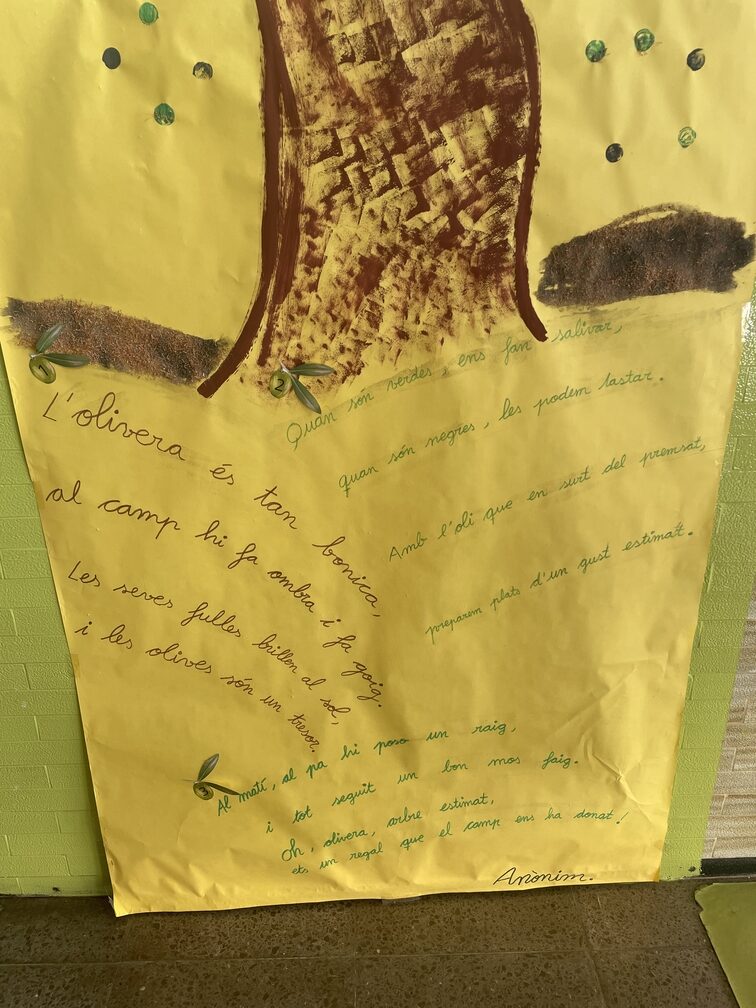 1
L'olivera és tan bonica,
al camp hi fa ombra i fa goig.
Les seves fulles brillen al sol,
i les olives són un tresor.
2
Quan són verdes, ens fan salivar,
quan són negres, les podem tastar.
Amb l'oli que en surt del premsat,
preparem plats d'un gust estimat.
3
Al matí, al pa hi poso un raig,
i tot seguit un bon mos faig.
Oh, olivera, arbre estimat,
ets un regal que el camp ens ha donat!
Anònim.